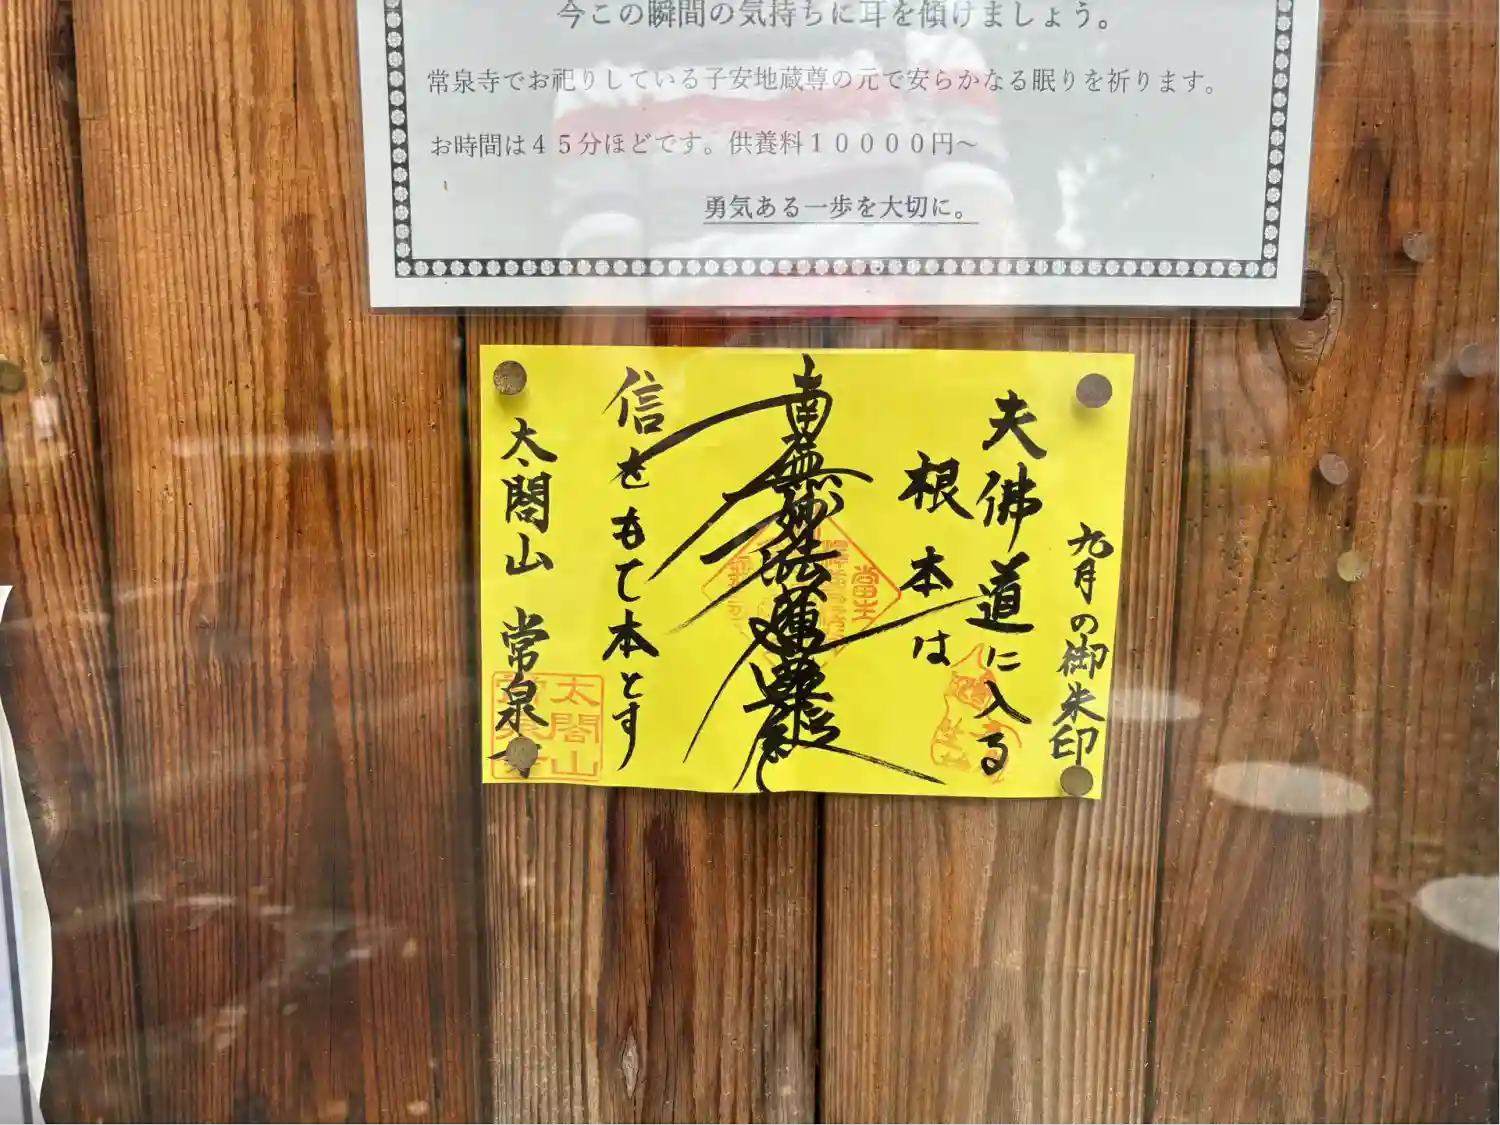 今この瞬間の気持ちに耳を傾けましょう。
常泉寺でお祀りしている子安地蔵尊の元で安らかなる眠りを祈ります。
お時間は４５分ほどです。供養料１００００円～
勇気ある一歩を大切に。
九月の御朱印
夫佛道に入る
根本は
南無妙法蓮華経
信をもて本とす
太閤山 常泉寺
太閤山